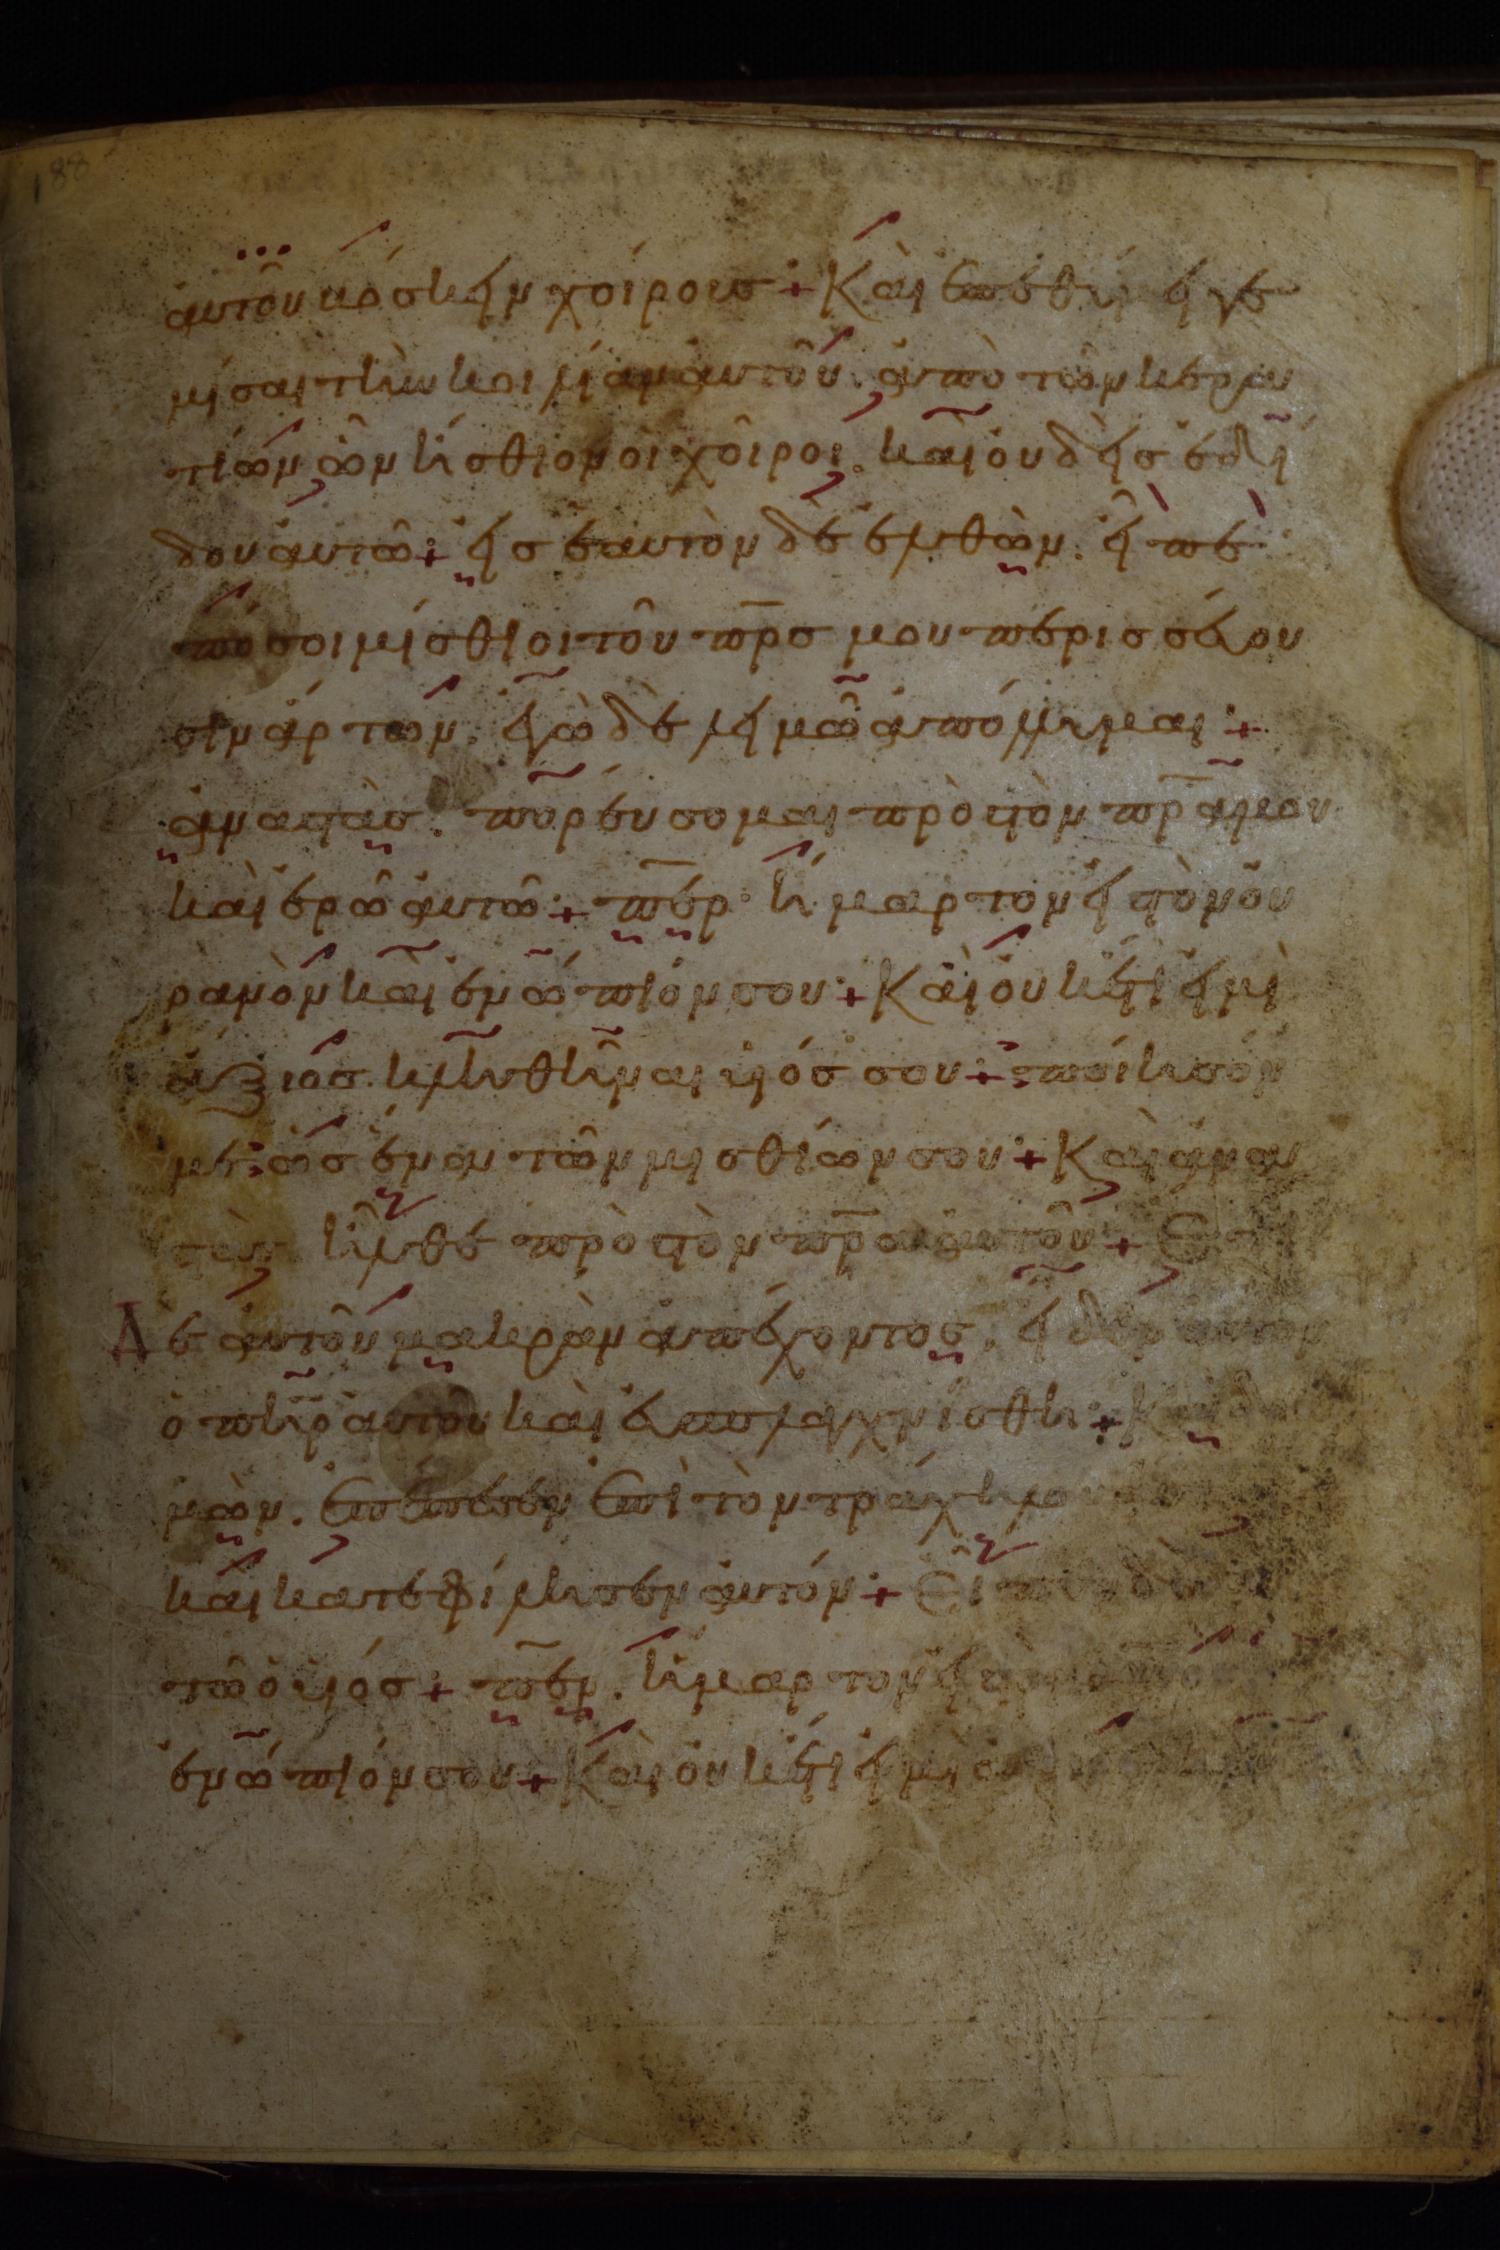 188
αὐτοῦ βόσκειν χοίρους + Καὶ ἐπεθύ ει γε
μίσαι τὴν κοιλίαν αὐτοῦ. ἀπὸ τῶν κερα
τίων ὧν ἤσθιον οἱ χοῖροι. καὶ οὐδεὶς ἐδί
δου αὐτῶ + εἰς ἑαυτὸν δὲ ἐλθὼν. εἶπε
πόσοι μίσθιοι τοῦ πρ̅σ μου περισσεύου
σιν ἄρτων. ἐγὼ δὲ λιμῶ ἀπόλλυμαι +
ἀναστὰς. πορεύσομαι πρὸς τὸν πρ̅α μου
καὶ ἐρῶ αὐτῶ + πε̅ρ ἥμαρτον εἰς τὸν οὐ
ρανὸν καὶ ἐνώπιόν σου + Καὶ οὐκέτι εἰμὶ
ἄξιος κληθῆναι υἱός σου + ποίησόν
με ὡς ἕνα τῶν μισθίων σου + Καὶ ἀνασ
τὰς ἦλθε πρὸς τὸν πρ̅α αὐτοῦ + Ἔτι
δὲ αὐτοῦ μακρὰν ἀπέχοντος. εἶδεν αὐτὸν
ὁ πη̅ρ αὐτοῦ καὶ ἐσπλαγχνίσθη + Κ
μὼν. ἐπέπεσεν ἐπὶ τὸν τράχηλο
καὶ κατεφίλησεν αὐτόν + Εἶ
τῶ ὁ υἱός + πε̅ρ. ἥμαρτον εἰς
ἐνώπιόν σου + Καὶ οὐκέτι εἰμὶ